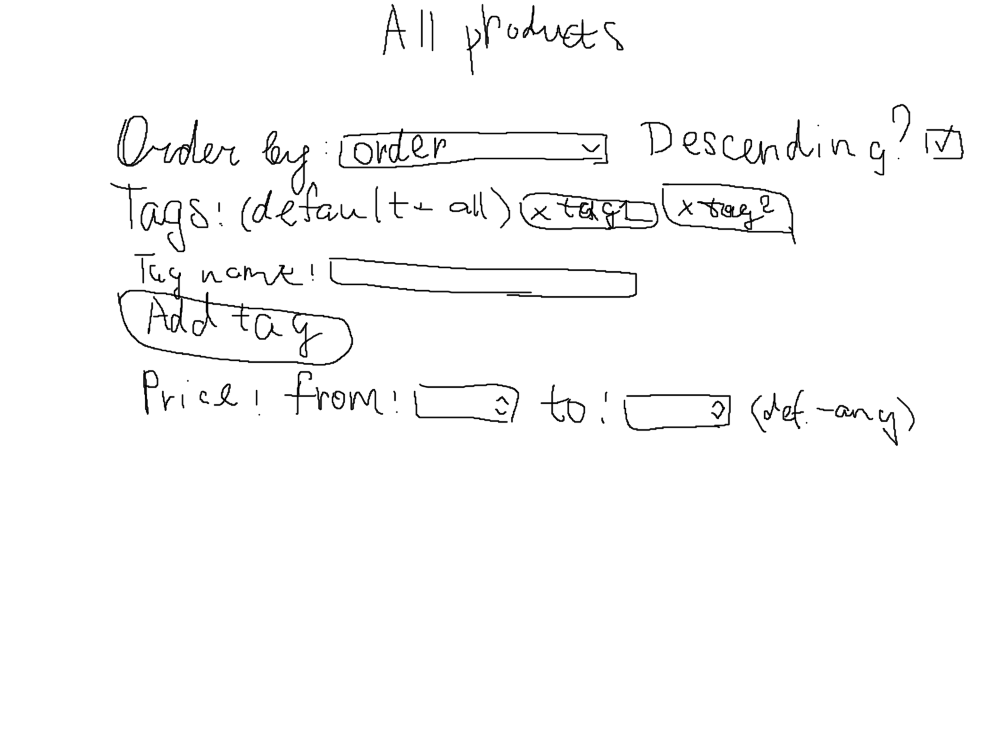 All products
Order by: order Descending?
Tags: (default - all) x tag1 x tag2
Tag name:
Add tag
Price: from: to: (def. - any)